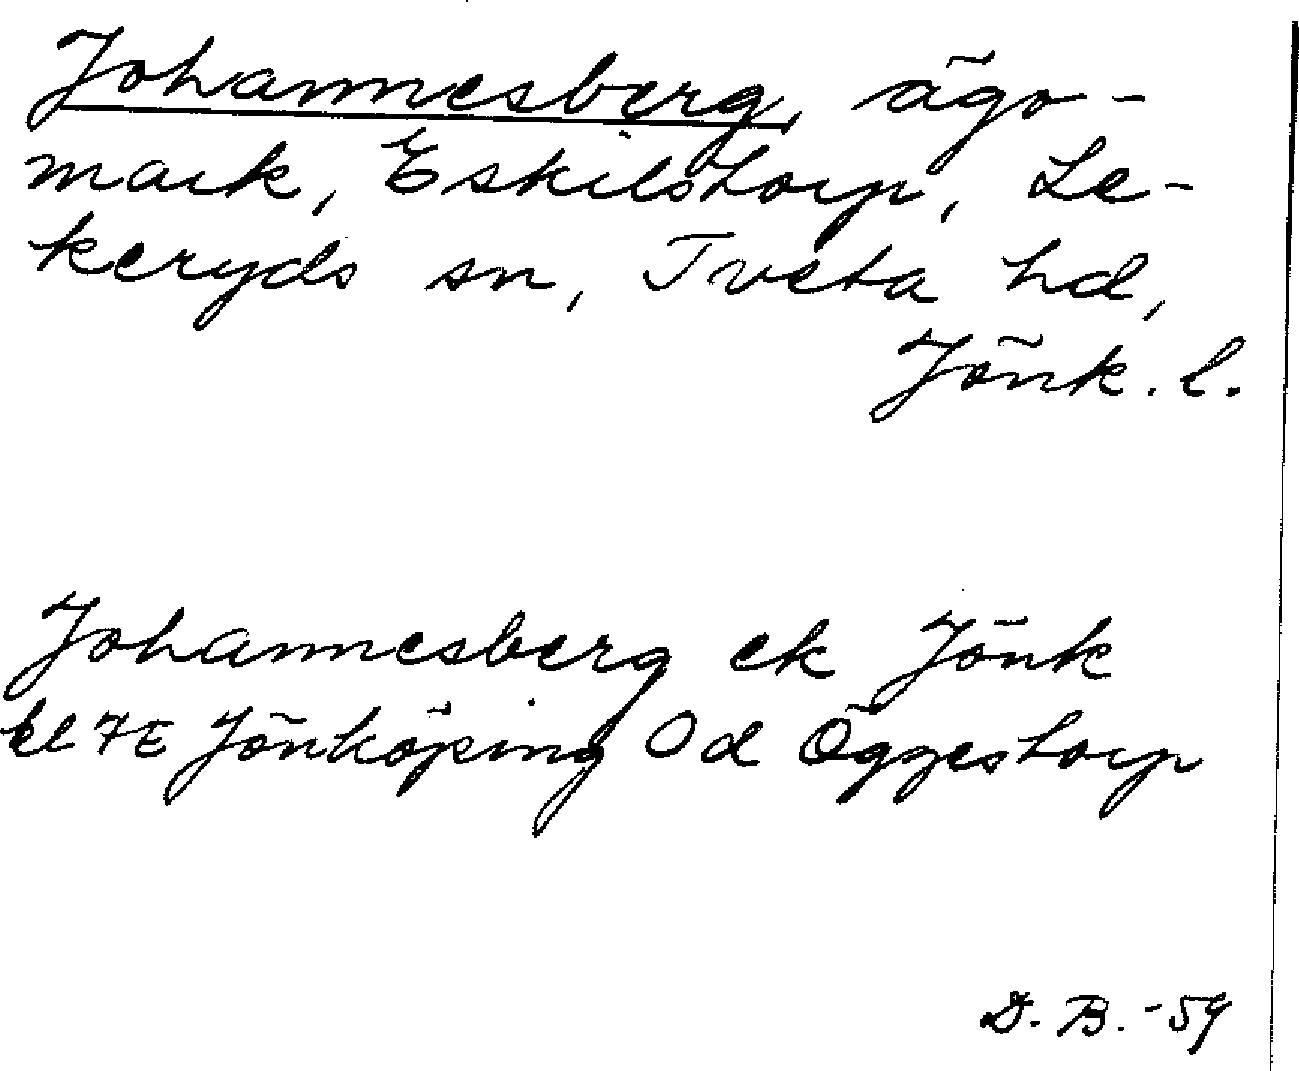 Johannesberg, ägo-
mark, Eskilstorp, Le-
keryds sn, Tveta hd,
Jönk. l.
Johannesberg ek Jönk
bl 7E Jönköping Od Öggestorp
D. B. -59